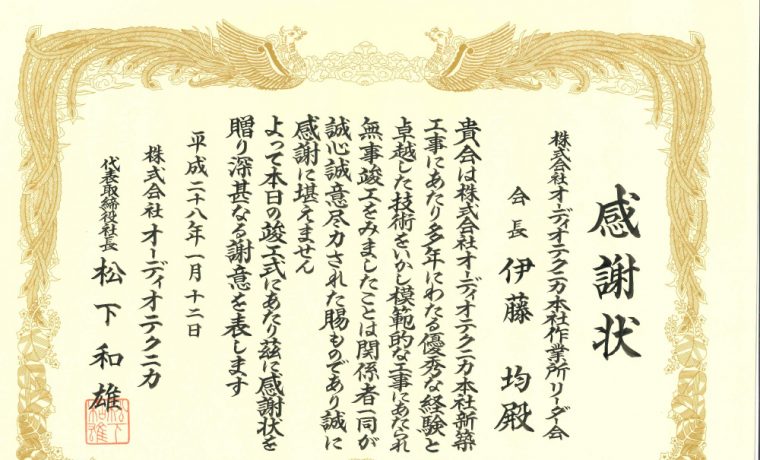 感謝状
株式会社オーディオテクニカ本社作業所リーダー会
会長 伊藤 均殿
貴会は株式会社オーディオテクニカ本社新築
工事にあたり多年にわたる優秀な経験と
卓越した技術をいかし模範的な工事にあたられ
無事竣工をみましたことは関係者一同が
誠心誠意尽力された賜ものであり誠に
感謝に堪えません
よって本日の竣工式にあたり茲に感謝状を
贈り深甚なる謝意を表します
平成二十八年一月十二日
株式会社オーディオテクニカ
代表取締役社長 松下和雄
松下和雄